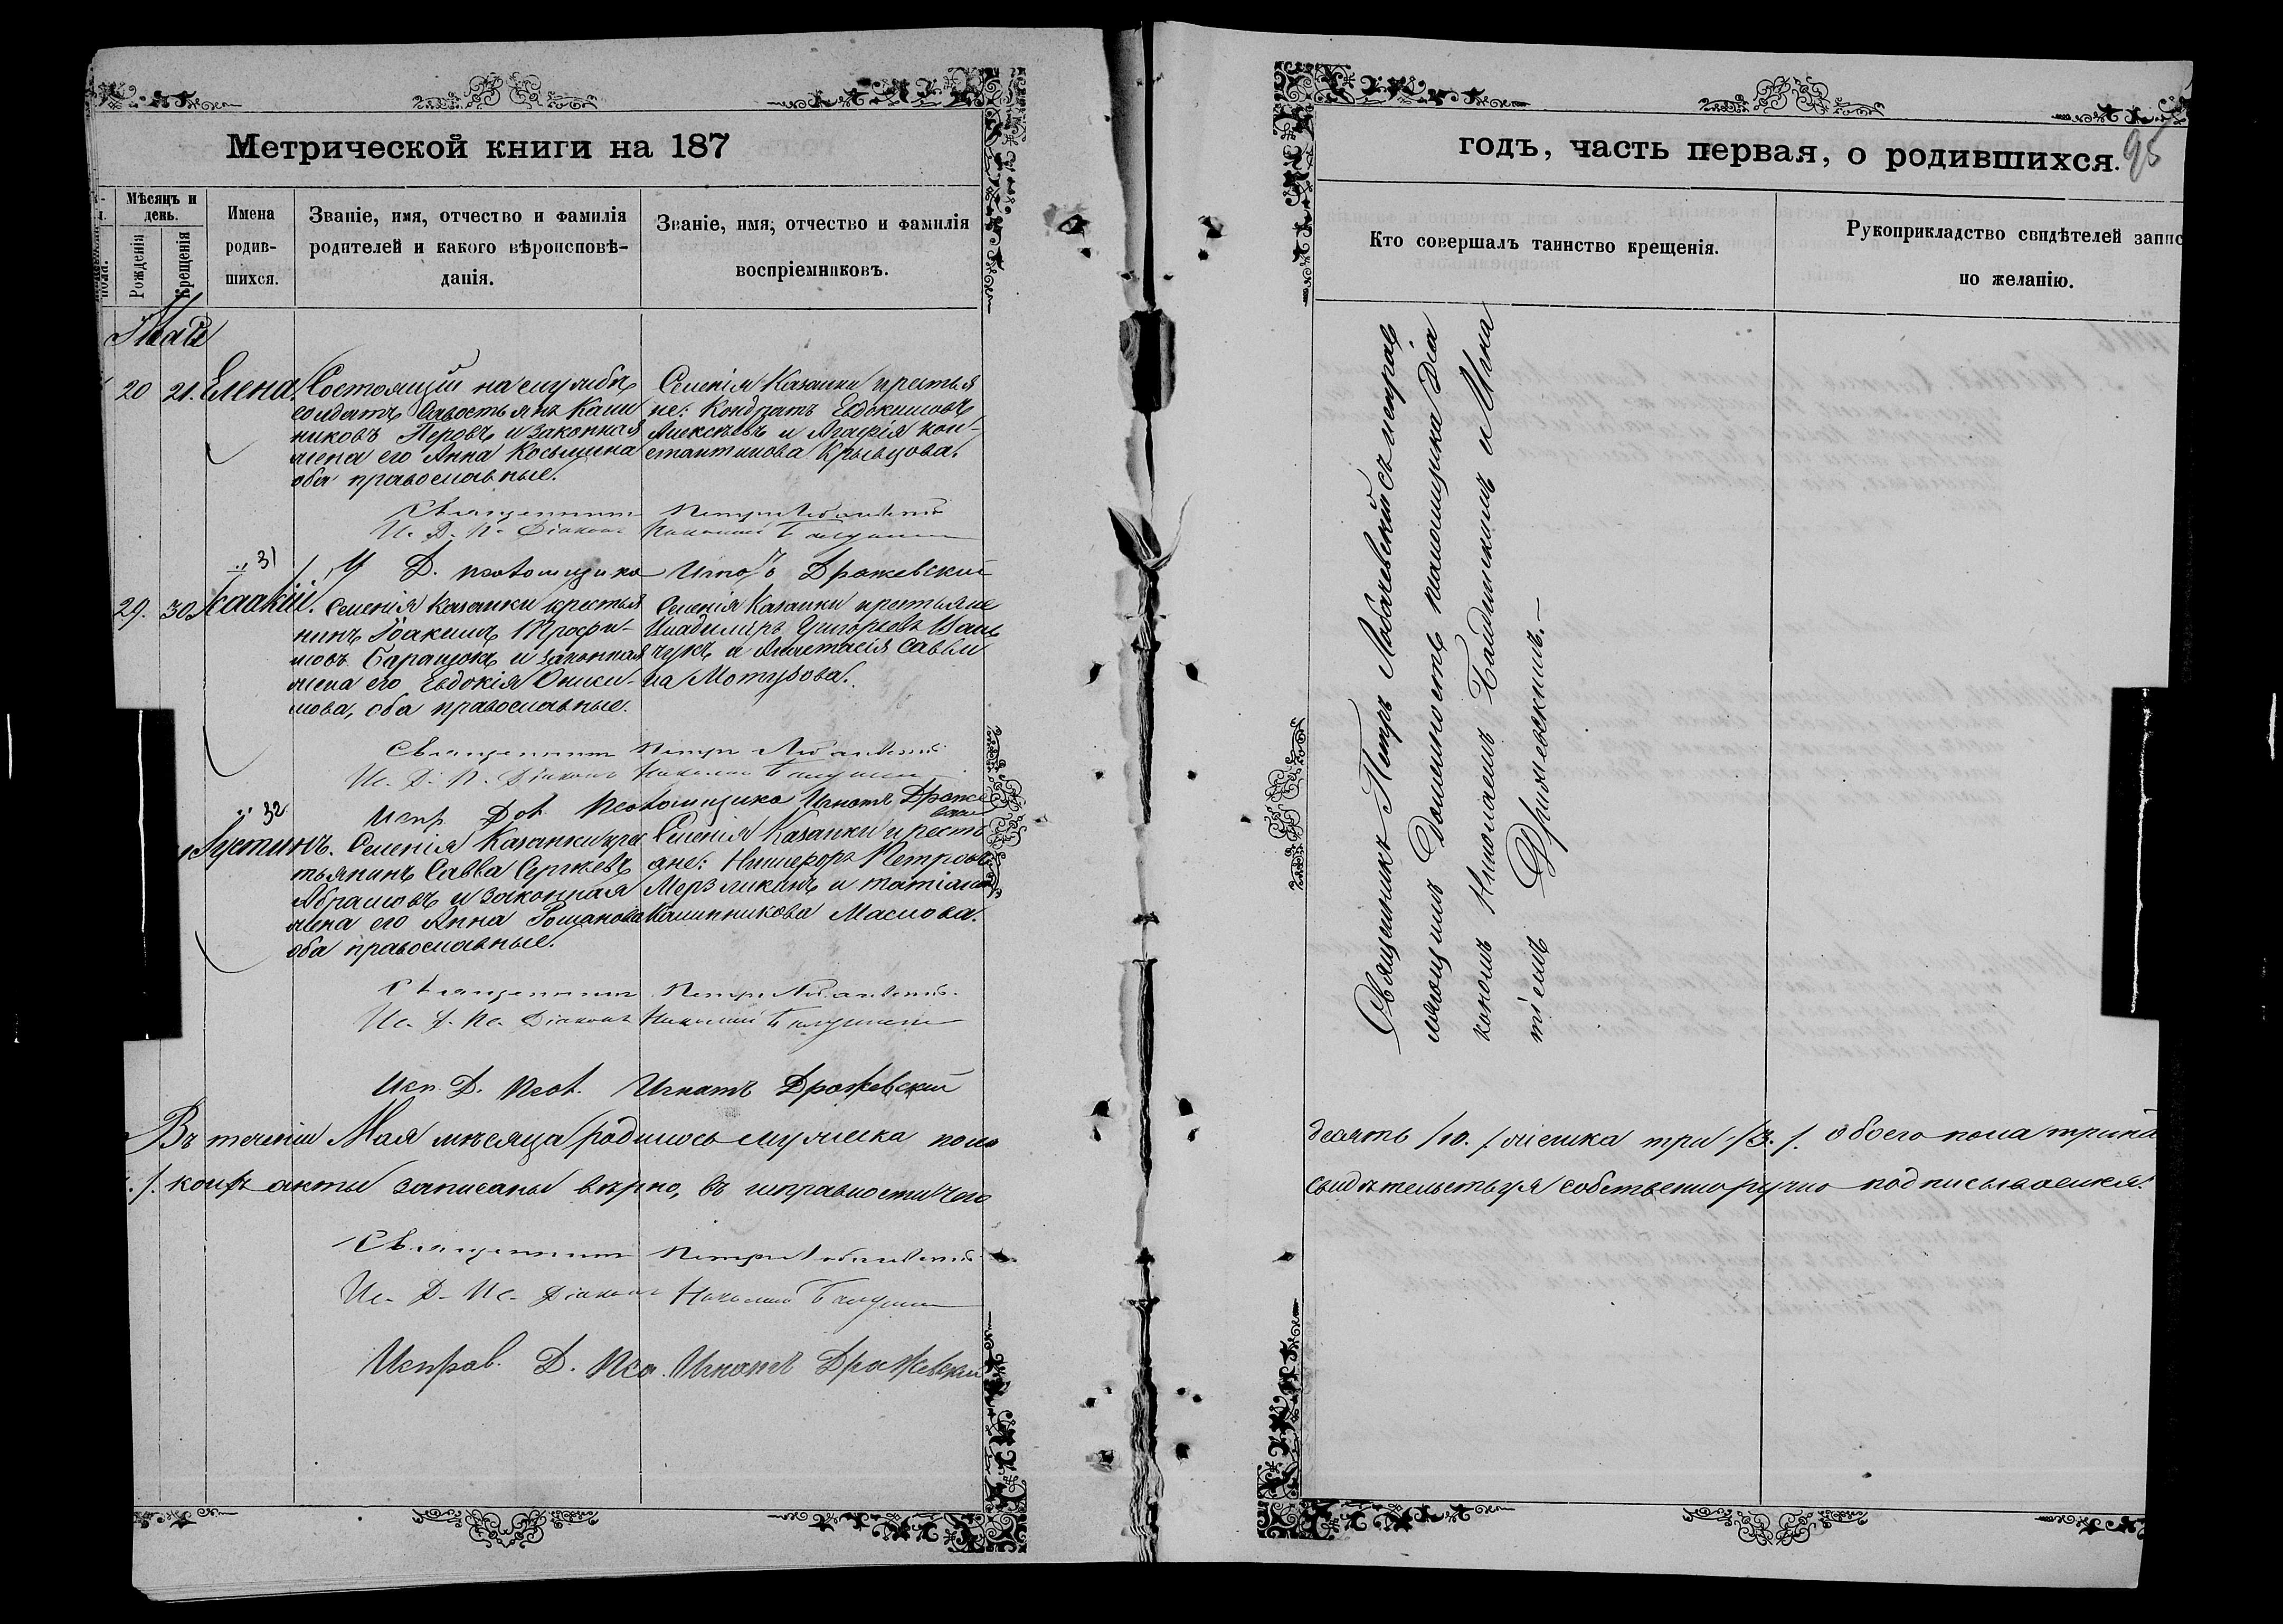 Метрической книги на 187
Мѣсяцъ и день.
Рожденія
Крещенія
Имена родив-шихся.
Званіе, имя, отчество и фамилія
родителей и какого вѣроисповѣ-
данія.
Званіе, имя, отчество и фамилія
воспріемниковъ.
Май
20 21. Елена.
Состоящій на службѣ
солдатъ Савостьянъ Кали
никовъ Перовъ и законная
жена его Анна Косьмина
оба православные.
Селенія Казанки крестья
не: Кондратъ Евдокимовъ
Алексѣевъ и Агафія Кон-
стантинова Крывцова.
Священникъ Петръ
И. Д. П. Діаконъ Николай
31
Д. псаломщика Игнатъ Дражевский
29. 30. Исаакій.
Селенія Казанки крестья
нинъ Іоакимъ Трофи-
мовъ и законная
жена его Евдокія Ониси-
мова, оба православные.
Селенія Казанки крестьяне
Владиміръ Григорьевъ
и Анастасія Савви
на Мотузова.
Священникъ Петръ
Ис. Д. П. Діаконъ Николай
32
Испр. Дол. Псаломщика Игнатъ Драже
вский
Іустинъ.
Селенія Казанки крес
тьянинъ Савва Сергѣевъ
Абрамовъ и законная
жена его Анна Романова
оба православные.
Селенія Казанки крестъ
яне: Никифоръ Петровъ
Мерзликинъ и Татіана
Калинникова Маслова.
Священникъ Петръ
Ис. Д. Пс. Діаконъ Николай
Исп. Д. Псал. Игнатъ Дражевский
Въ теченіи Мая мѣсяца родилось мужеска пола
коихъ акты записаны вѣрно, въ исправности чего
Священникъ Петръ
Ис. Д. Ис. Діаконъ Николай
Исправ. Д. Пса. Игнатъ Дражевский
годъ, часть первая, о родившихся.
95
Кто совершалъ таинство крещенія.
Рукоприкладство свидѣтелей запис
по желанію.
Священникъ Петръ съ исправ
ляющимъ Должность псаломщика Діа
кономъ Николаемъ и Игна
тіемъ Дражевскимъ.—
десять /10./ женска три /3./. обоего пола трина
свидѣтельствуя собственноручно подписываемся: